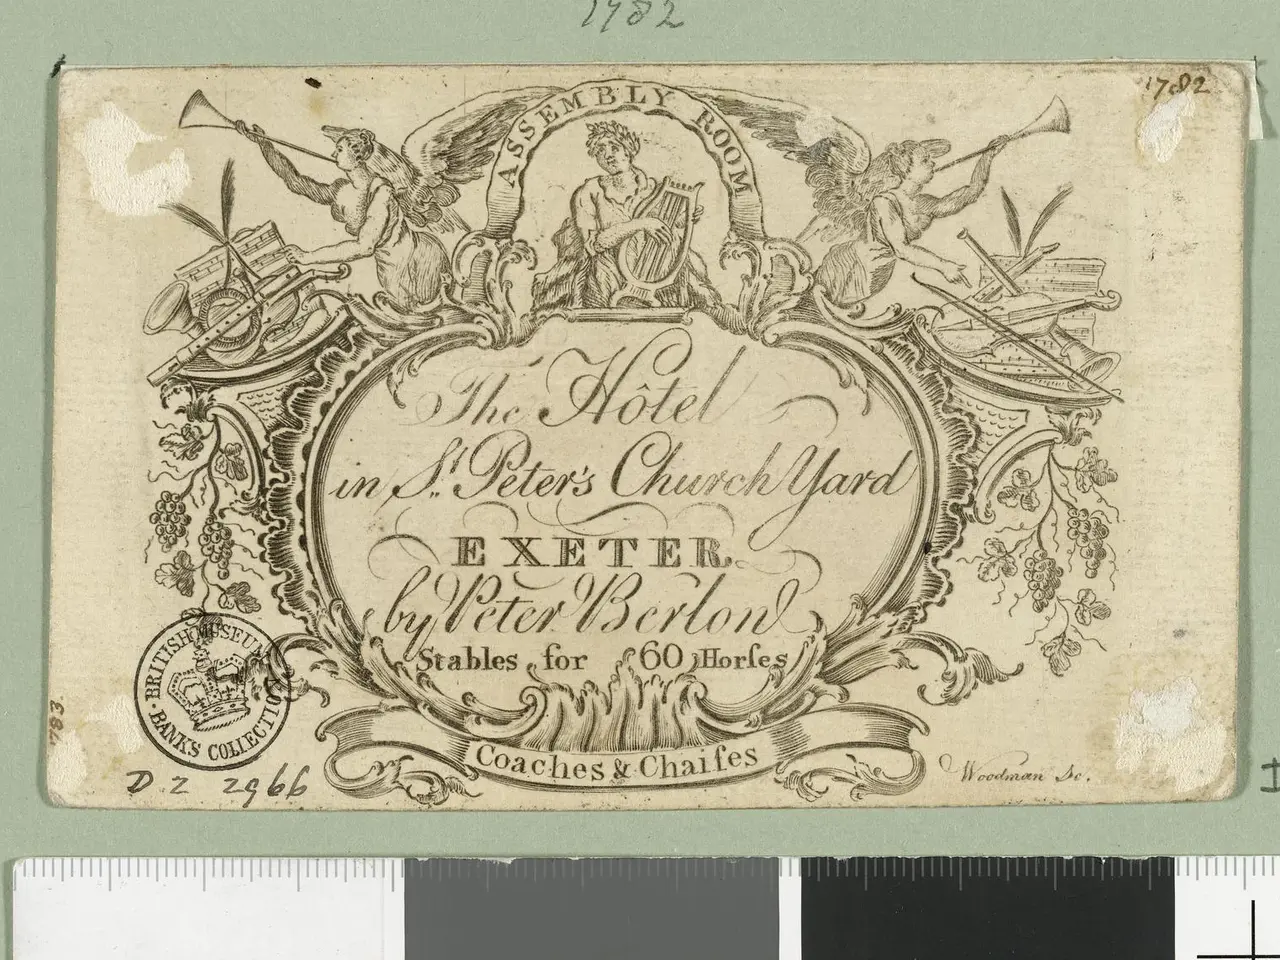 1782
1782
ASSEMBLY ROOM
The Hôtel
in St. Peter's Church Yard
EXETER
by Peter Berlon
Stables for 60 Horſes
Coaches & Chaiſes
Woodman Sc.
BRITISH MUSEUM
BANKS COLLECTION
D. 2 2966